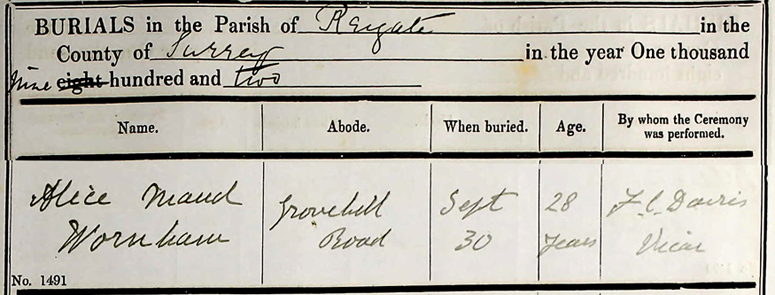 BURIALS in the Parish of Reigate in the
County of Surrey in the year One thousand
Nine eight hundred and two
Name. Abode. When buried. Age. By whom the Ceremony was performed.
Alice Maud Grovehill Sept 28 F. C. Davis
Wornham Road 30 Years Vicar
No. 1491